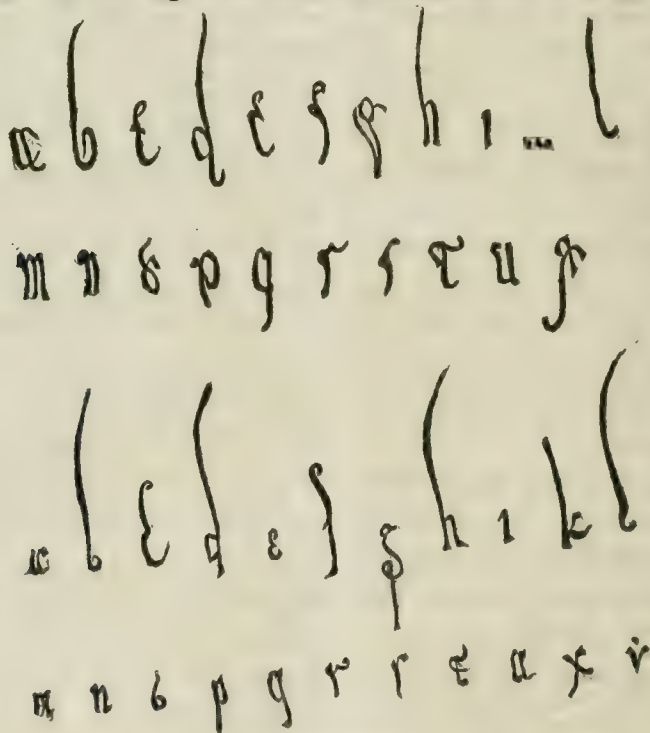 a b c d e f g h i l
m n o p q r s t u x
a b c d e f g h i k l
m n o p q r s t u x y